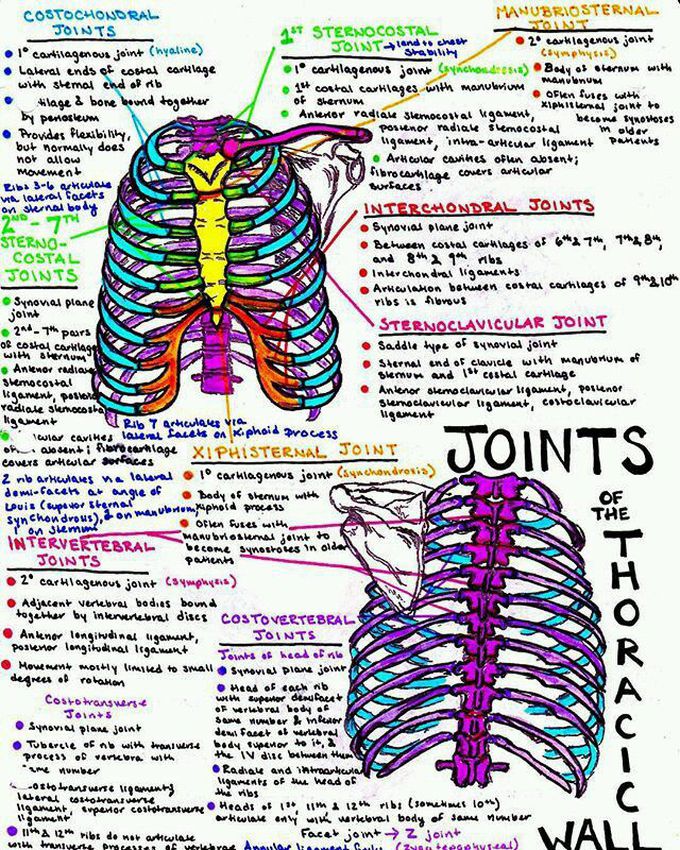 COSTOCHONDRAL
JOINTS
1° cartilagenous joint (hyaline)
Lateral ends of costal cartilage
with sternal end of rib
tilage & bone bound together
by periosteum
Provides flexibility,
but normally does
not allow
movement
Ribs 3-6 articulate
via lateral facets
on sternal body
2ND - 7TH
STERNO-
COSTAL
JOINTS
Synovial plane
joint
2nd - 7th pairs
of costal cartilage
with sternum
Anterior radiate
sternocostal
ligament, posterior
radiate sternocostal
ligament
cular cavities
absent; fibrocartilage
covers articular surfaces
Rib 7 articulates via
lateral facets on xiphoid process
2 rib articulates via lateral
demi-facets at angle of
Louis (superior sternal
synchondrosis), 1 on manubrium,
1 on sternum
1ST STERNOCOSTAL
JOINT → lend to chest
stability
1° cartilagenous joint (synchondrosis)
1st costal cartilages with manubrium
of sternum
Anterior radiate sternocostal ligament,
posterior radiate sternocostal
ligament, intra-articular ligament
Articular cavities often absent;
fibrocartilage covers articular
surfaces
MANUBRIOSTERNAL
JOINT
2° cartilagenous joint
(symphysis)
Body of sternum with
manubrium
Often fuses with
xiphisternal joint to
become synostoses
in older
patients
INTERCHONDRAL JOINTS
Synovial plane joint
Between costal cartilages of 6th & 7th, 7th & 8th,
and 8th & 9th ribs
Interchondral ligaments
Articulation between costal cartilages of 9th & 10th
ribs is fibrous
STERNOCLAVICULAR JOINT
Saddle type of synovial joint
Sternal end of clavicle with manubrium of
sternum and 1st costal cartilage
Anterior sternoclavicular ligament, posterior
sternoclavicular ligament, costoclavicular
ligament
XIPHISTERNAL JOINT
1° cartilagenous joint (synchondrosis)
Body of sternum with
xiphoid process
Often fuses with
manubriosternal joint to
become synostoses in older
patients
JOINTS
OF
THE
THORACIC
WALL
INTERVERTEBRAL
JOINTS
2° cartilagenous joint (symphysis)
Adjacent vertebral bodies bound
together by intervertebral discs
Anterior longitudinal ligament,
posterior longitudinal ligament
Movement mostly limited to small
degrees of rotation
Costotransverse
Joints
Synovial plane joint
Tubercle of rib with transverse
process of vertebra with
same number
costotransverse ligament,
lateral costotransverse
ligament, superior costotransverse
ligament
11th & 12th ribs do not articulate
with transverse processes of vertebrae
COSTOVERTEBRAL
JOINTS
Joints of head of rib
Synovial plane joint
Head of each rib
with superior demifacet
of vertebral body of
same number & inferior
demi facet of vertebral
body superior to it, &
the IV disc between them
Radiate and intraarticular
ligaments of the head of
the ribs
Heads of 1st, 11th & 12th ribs (sometimes 10th)
articulate only with vertebral body of same number
Facet joint → Z joint
(zygapophyseal)
Annular ligament